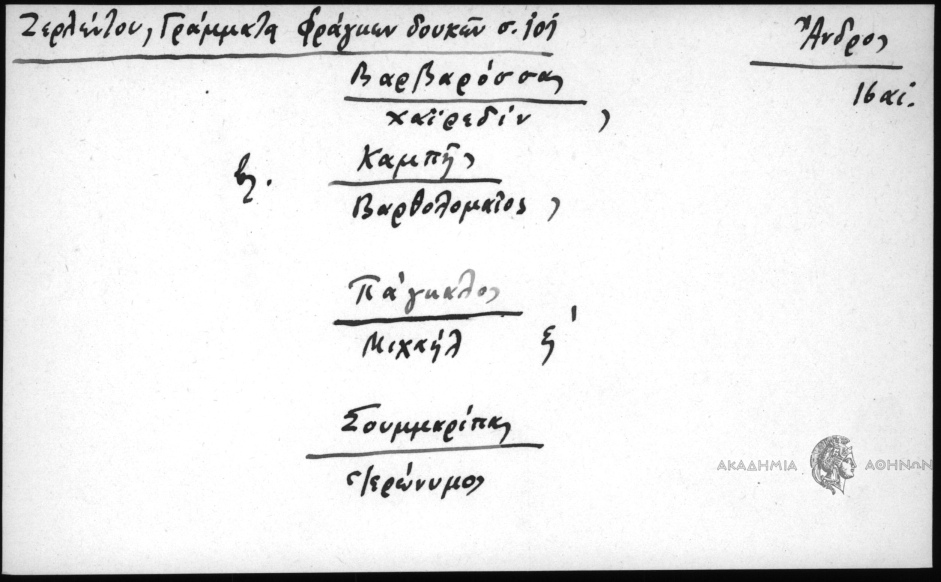 Ζερλέντου, Γράμματα Φράγκων δουκῶν σ. 101
Ἄνδρος
16 αἰ.
Βαρβαρόσσας
Χαϊρεδίν,
βλ.
Καμπῆς
Βαρθολομαῖος,
Πάγκαλος
Μιχαήλ ξ'
Σουμμαρίπας
Ἱερώνυμος
ΑΚΑΔΗΜΙΑ ΑΘΗΝΩΝ